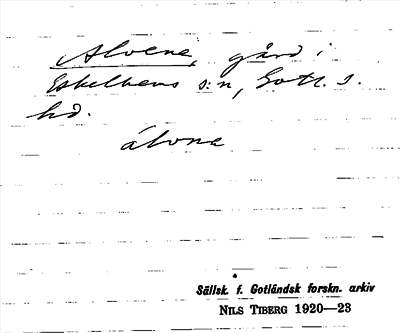 Alvene, gård i
Eskelhems s:n, Gotl. s.
hd.
álvne
Sällsk. f. Gotländsk forskn. arkiv
NILS TIBERG 1920—23